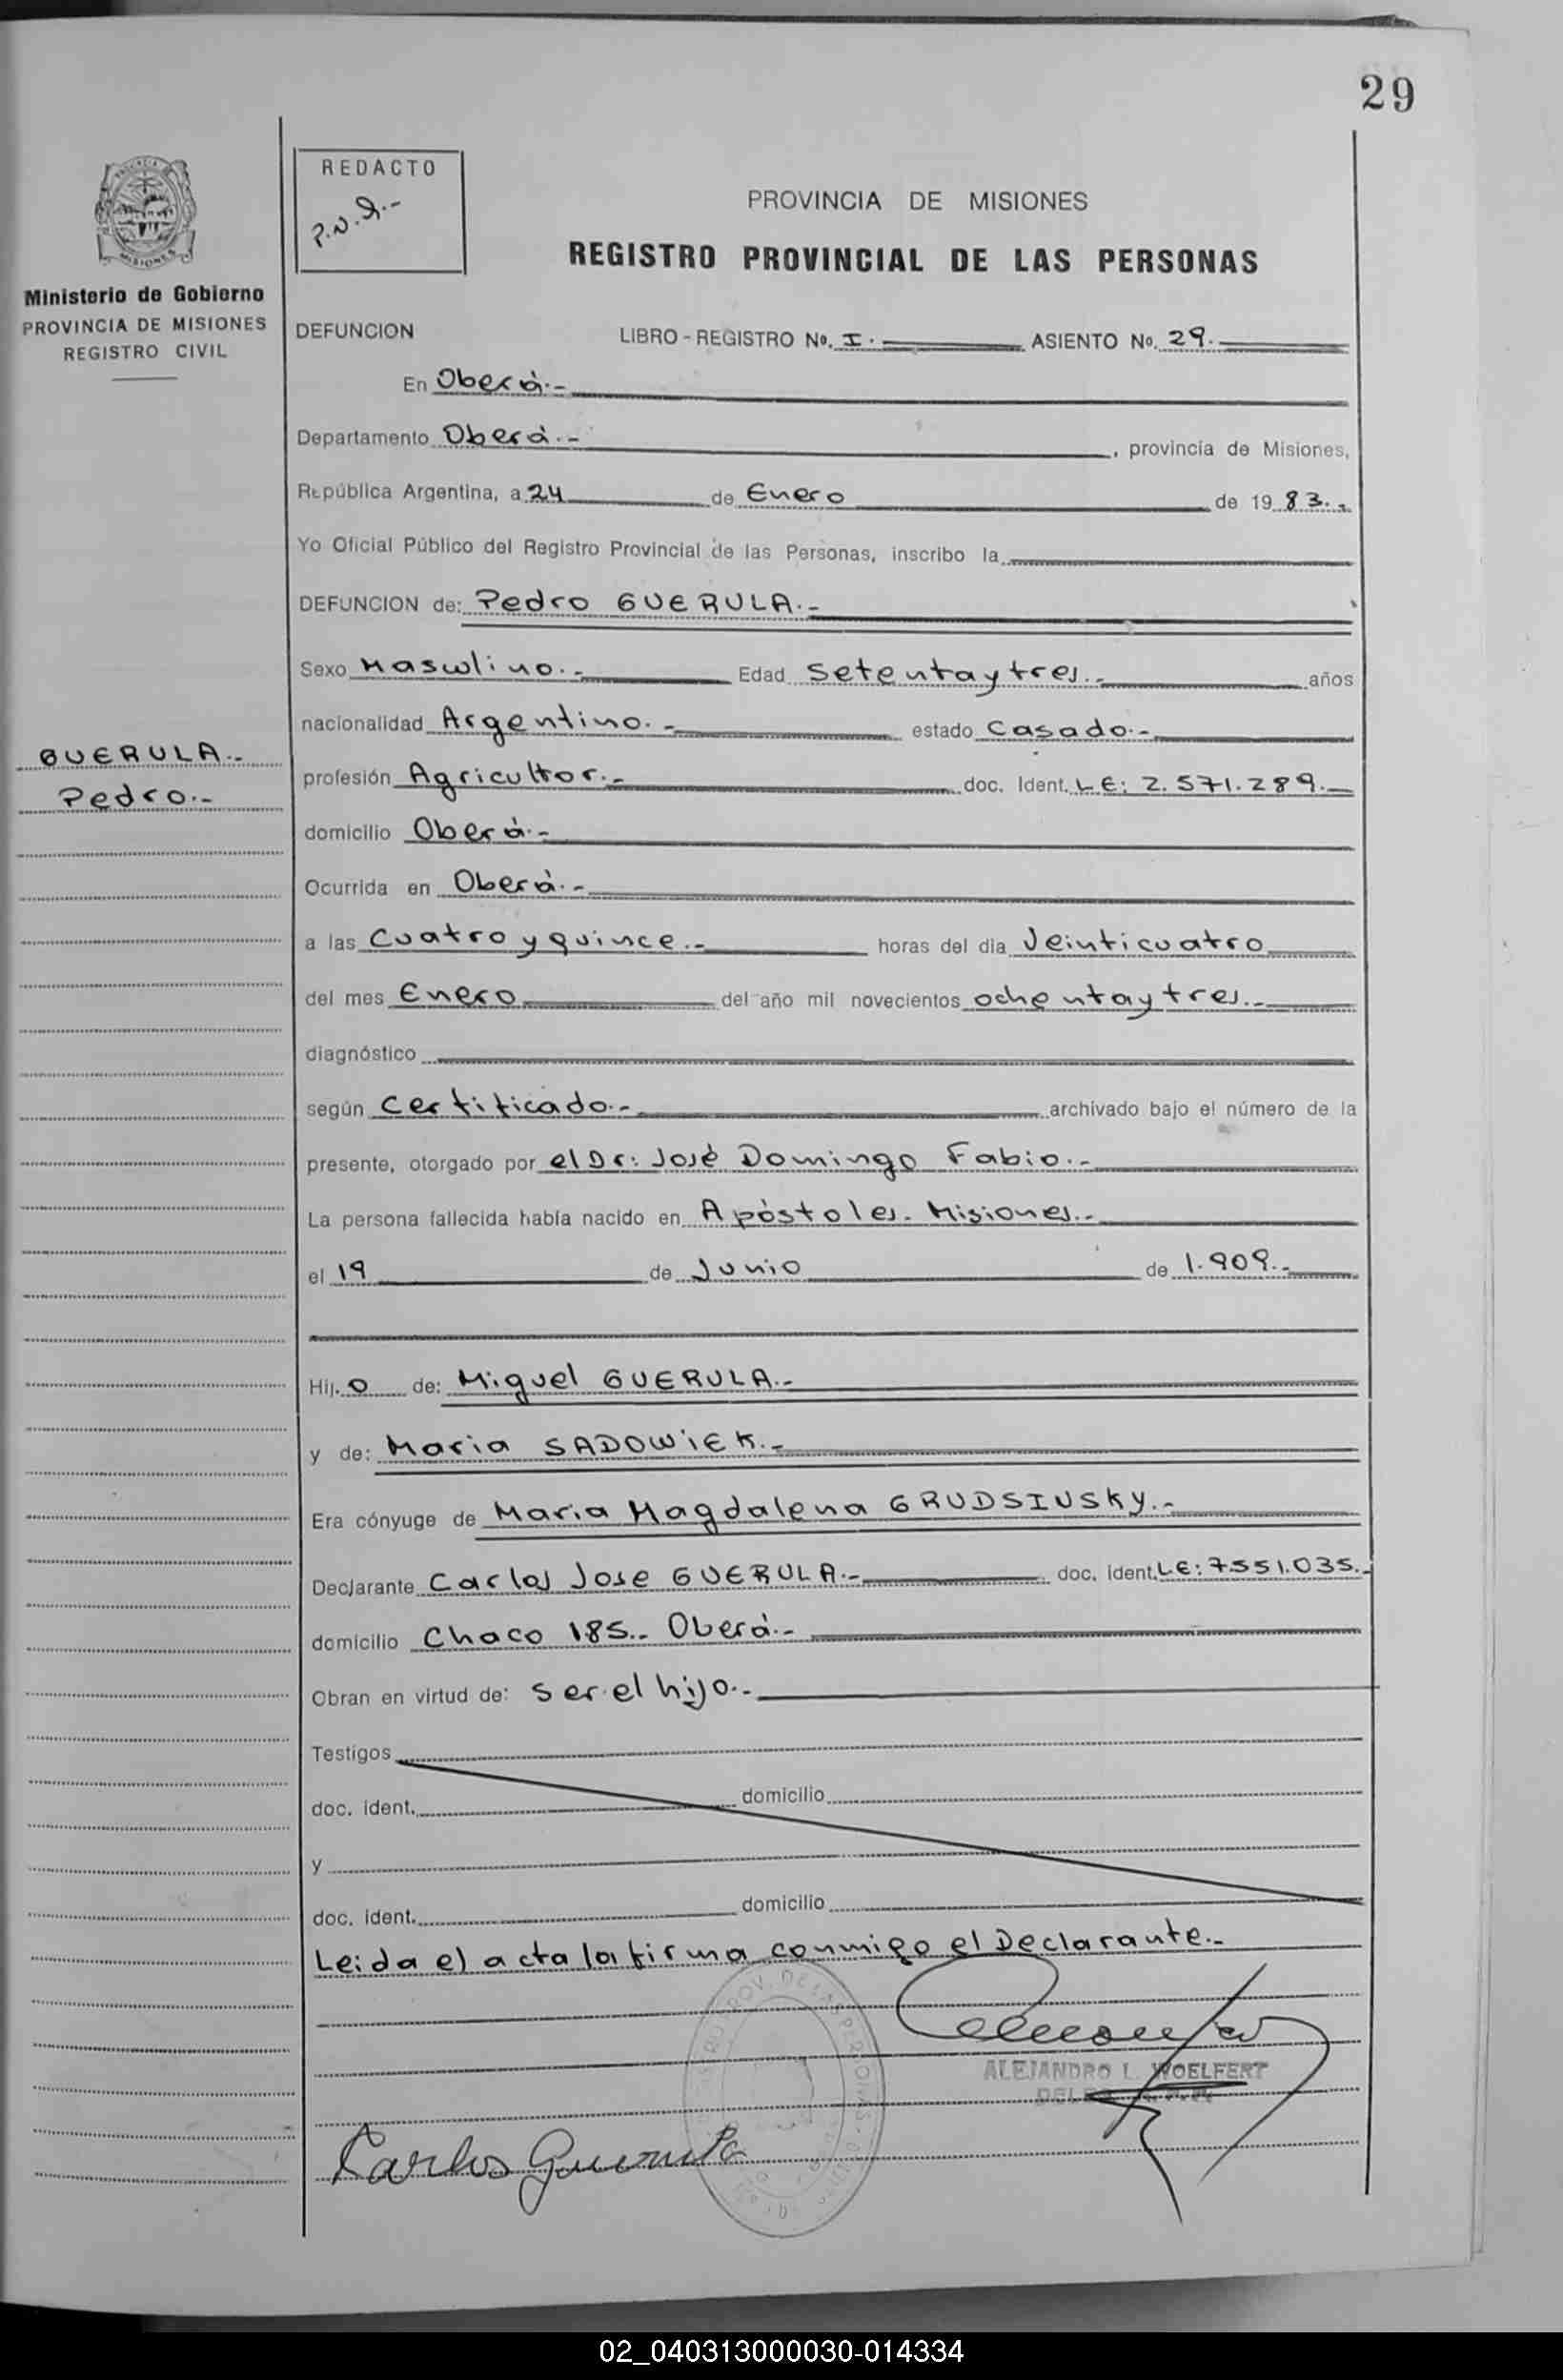 29
REDACTO
P.N.G.-
PROVINCIA DE MISIONES
REGISTRO PROVINCIAL DE LAS PERSONAS
MISIONES
Ministerio de Gobierno
PROVINCIA DE MISIONES
REGISTRO CIVIL
DEFUNCION LIBRO - REGISTRO Nº. I. ASIENTO Nº. 29.
En Oberá.-
Departamento Oberá.- , provincia de Misiones,
República Argentina, a 24 de Enero de 19 83.-
Yo Oficial Público del Registro Provincial de las Personas, inscribo la
DEFUNCION de: Pedro GUERULA.-
Sexo Masculino.- Edad Setenta y tres.- años
nacionalidad Argentino.- estado Casado.-
GUERULA.-
Pedro.-
profesión Agricultor.- doc. Ident. LE: 2.571.289.-
domicilio Oberá.-
Ocurrida en Oberá.-
a las Cuatro y quince.- horas del dia Veinticuatro
del mes Enero del año mil novecientos ochenta y tres.-
diagnóstico
según Certificado.- archivado bajo el número de la
presente, otorgado por el Dr: José Domingo Fabio.-
La persona fallecida había nacido en Apóstoles. Misiones.-
el 19 de Junio de 1.909.-
Hij. o de: Miguel GUERULA.-
y de: Maria SADOWIEK.-
Era cónyuge de Maria Magdalena GRUDSINSKY.-
Declarante Carlos Jose GUERULA.- doc. Ident. LE: 7.551.035.-
domicilio Chaco 185.- Oberá.-
Obran en virtud de: Ser el hijo.-
Testigos
doc. ident. domicilio
y
doc. ident. domicilio
Leida el acta la firma conmigo el Declarante.-
ALEJANDRO L. WOELFERT
Carlos Guerula
02_040313000030-014334